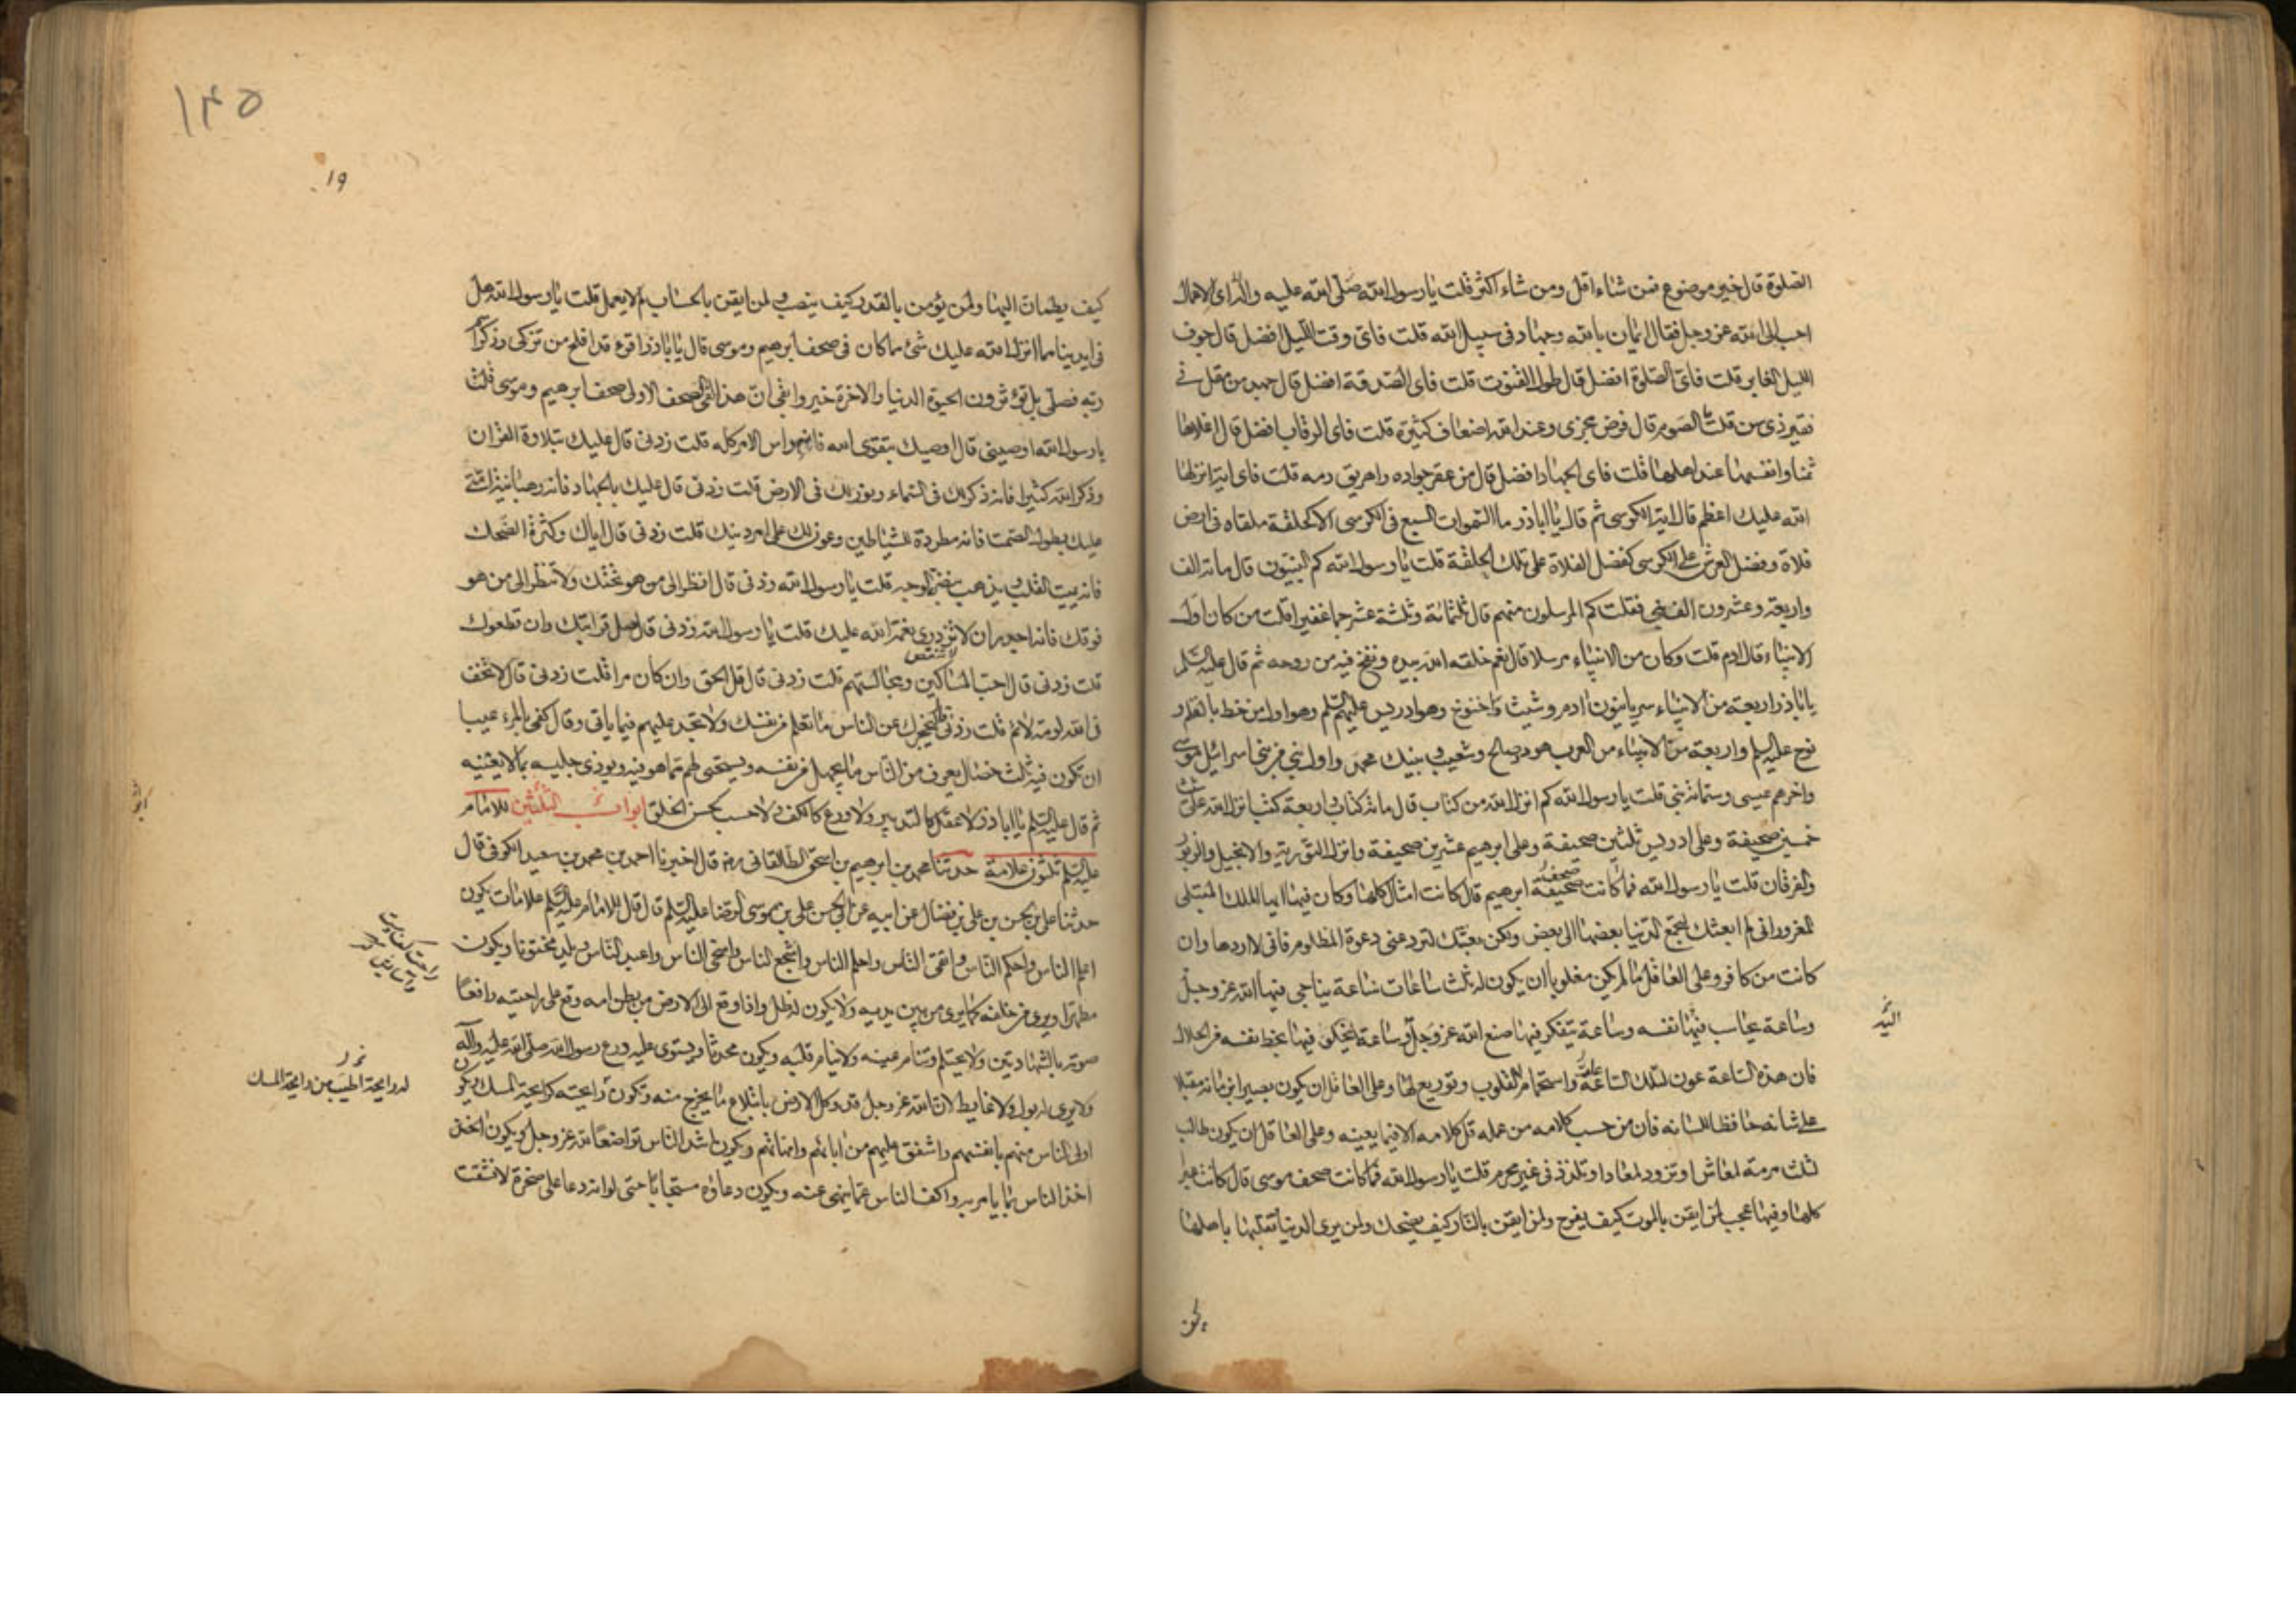 الصلوة قال خير موضوع فمن شاء اقل ومن شاء اكثر قلت يا رسول الله صلى الله عليه واله اى الاعمال
احب الى الله عز وجل فقال ايمان بالله وجهاد فى سبيل الله قلت فاى وقت الليل افضل قال جوف
الليل الغابر قلت فاى الصلوة افضل قال طول القنوت قلت فاى الصدقة افضل قال جهد من مقل فى
فقير ذى سن قلت ما الصوم قال فرض مجزى وعند الله اضعاف كثيرة قلت فاى الرقاب افضل قال اغلاها
ثمنا وانفسها عند اهلها قلت فاى الجهاد افضل قال من عقر جواده واهريق دمه قلت فاى اية انزلها
الله عليك اعظم قال اية الكرسى ثم قال يا اباذر ما السموات السبع فى الكرسى الا كحلقة ملقاه فى ارض
فلاة وفضل العرش على الكرسى كفضل الفلاة على تلك الحلقة قلت يا رسول الله كم النبيون قال مائة الف
واربعة وعشرون الف نبى فقلت كم المرسلون منهم قال ثلثمائة وثلثة عشر جما غفيرا قلت من كان اول
الانبياء قال ادم قلت وكان من الانبياء مرسلا قال نعم خلقه الله بيده ونفخ فيه من روحه ثم قال عليه السلم
يا اباذر اربعة من الانبياء سريانيون ادم وشيث واخنوخ وهو ادريس عليهم السلم وهو اول من خط بالقلم و
نوح عليه السلم واربعة من الانبياء من العرب هود وصالح وشعيب ونبيك محمد واول نبى من بنى اسرائيل موسى
واخرهم عيسى وستمائة نبى قلت يا رسول الله كم انزل الله من كتاب قال مائة كتاب واربعة كتب انزل الله على شيث
خمسين صحيفة وعلى ادريس ثلثين صحيفة وعلى ابرهيم عشرين صحيفة وانزل التورية والانجيل والزبور
والفرقان قلت يا رسول الله فما كانت صحيفة ابرهيم قال كانت امثال كلها وكان فيها ايها الملك المبتلى
المغرور انى لم ابعثك لتجمع الدنيا بعضها الى بعض ولكن بعثتك لترد عنى دعوة المظلوم فانى لا اردها وان
كانت من كافر وعلى العاقل ما لم يكن مغلوبا ان يكون له ثلث ساعات ساعة يناجى فيها الله عز وجل
وساعة يحاسب فيها نفسه وساعة يتفكر فيها صنع الله عز وجل وساعة يخلو فيها بحظ نفسه من الحلال
فان هذه الساعة عون لتلك الساعة واستجمام للقلوب وتوزيع لها وعلى العاقل ان يكون بصيرا بزمانه مقبلا
على شانه حافظا للسانه فان من حسب كلامه من عمله قل كلامه الا فيما يعنيه وعلى العاقل ان يكون طالب
لثلث مرمة لمعاش او تزود لمعاد او تلذذ فى غير محرم قلت يا رسول الله فما كانت صحف موسى قال كانت عبر
كلها وفيها عجب لمن ايقن بالموت كيف يفرح ولمن ايقن بالنار كيف يضحك ولمن يرى الدنيا وتقلبها باهلها
اليه
١٤٥
١٩
كيف يطمان اليها ولمن يؤمن بالقدر كيف ينصب ولمن ايقن بالحساب لم لا يعمل قلت يا رسول الله هل
فى ايدينا مما انزل الله عليك شئ مما كان فى صحف ابرهيم وموسى قال يا اباذر اقرء قد افلح من تزكى وذكر اسم
ربه فصلى بل تؤثرون الحيوة الدنيا والاخرة خير وابقى ان هذا لفى الصحف الاولى صحف ابرهيم وموسى قلت
يا رسول الله اوصينى قال اوصيك بتقوى الله فانه راس الامر كله قلت زدنى قال عليك بتلاوة القران
وذكر الله كثيرا فانه ذكر لك فى السماء ونور لك فى الارض قلت زدنى قال عليك بالجهاد فانه رهبانية امتى
عليك بطول الصمت فانه مطردة للشياطين وعون لك على امر دينك قلت زدنى قال اياك وكثرة الضحك
فانه يميت القلب ويذهب بنور الوجه قلت يا رسول الله زدنى قال انظر الى من هو تحتك ولا تنظر الى من هو
فوقك فانه اجدر ان لا تزدرى نعمة الله عليك قلت يا رسول الله زدنى قال صل قرابتك وان قطعوك
قلت زدنى قال احب المساكين ومجالستهم قلت زدنى قال قل الحق وان كان مرا قلت زدنى قال لا تخف
فى الله لومة لائم قلت زدنى قال ليحجزك عن الناس ما تعلم من نفسك ولا تجد عليهم فيما ياتى وقال كفى بالمرء عيبا
ان تكون فيه ثلث خصال يعرف من الناس ما يجهل من نفسه ويستحيى لهم مما هو فيه ويوذى جليسه بما لا يعنيه
ثم قال عليه السلم يا اباذر لا عقل كالتدبير ولا ورع كالكف ولا حسب كحسن الخلق ابواب الثلثين للامام
عليه السلم ثلثون علامة حدثنا محمد بن ابرهيم بن اسحق الطالقانى رضه قال اخبرنا احمد بن محمد بن سعيد الكوفى قال
حدثنا على بن الحسن بن على بن فضال عن ابيه عن ابى الحسن على بن موسى الرضا عليه السلم قال قال للامام عليه السلم علامات يكون
اعلم الناس واحكم الناس واتقى الناس واحلم الناس واشجع الناس واسخى الناس واعبد الناس ويلد مختونا ويكون
مطهرا ويرى من خلفه كما يرى من بين يديه ولا يكون له ظل واذا وقع الى الارض من بطن امه وقع على راحتيه رافعا
صوته بالشهادتين ولا يحتلم وتنام عينه ولا ينام قلبه ويكون محدثا ويستوى عليه درع رسول الله صلى الله عليه واله
ولا يرى له بول ولا غايط لان الله عز وجل قد وكل الارض بابتلاع ما يخرج منه وتكون رايحته كرايحة المسك ويكون
اولى الناس منهم بانفسهم واشفق عليهم من ابائهم وامهاتهم ويكون اشد الناس تواضعا لله عز وجل ويكون اخذ
اخذ الناس بما يامر به واكف الناس عما ينهى عنه ويكون دعاؤه مستجابا حتى لو انه دعا على صخرة لانشقت
له رايحة اطيب من رايحة المسك